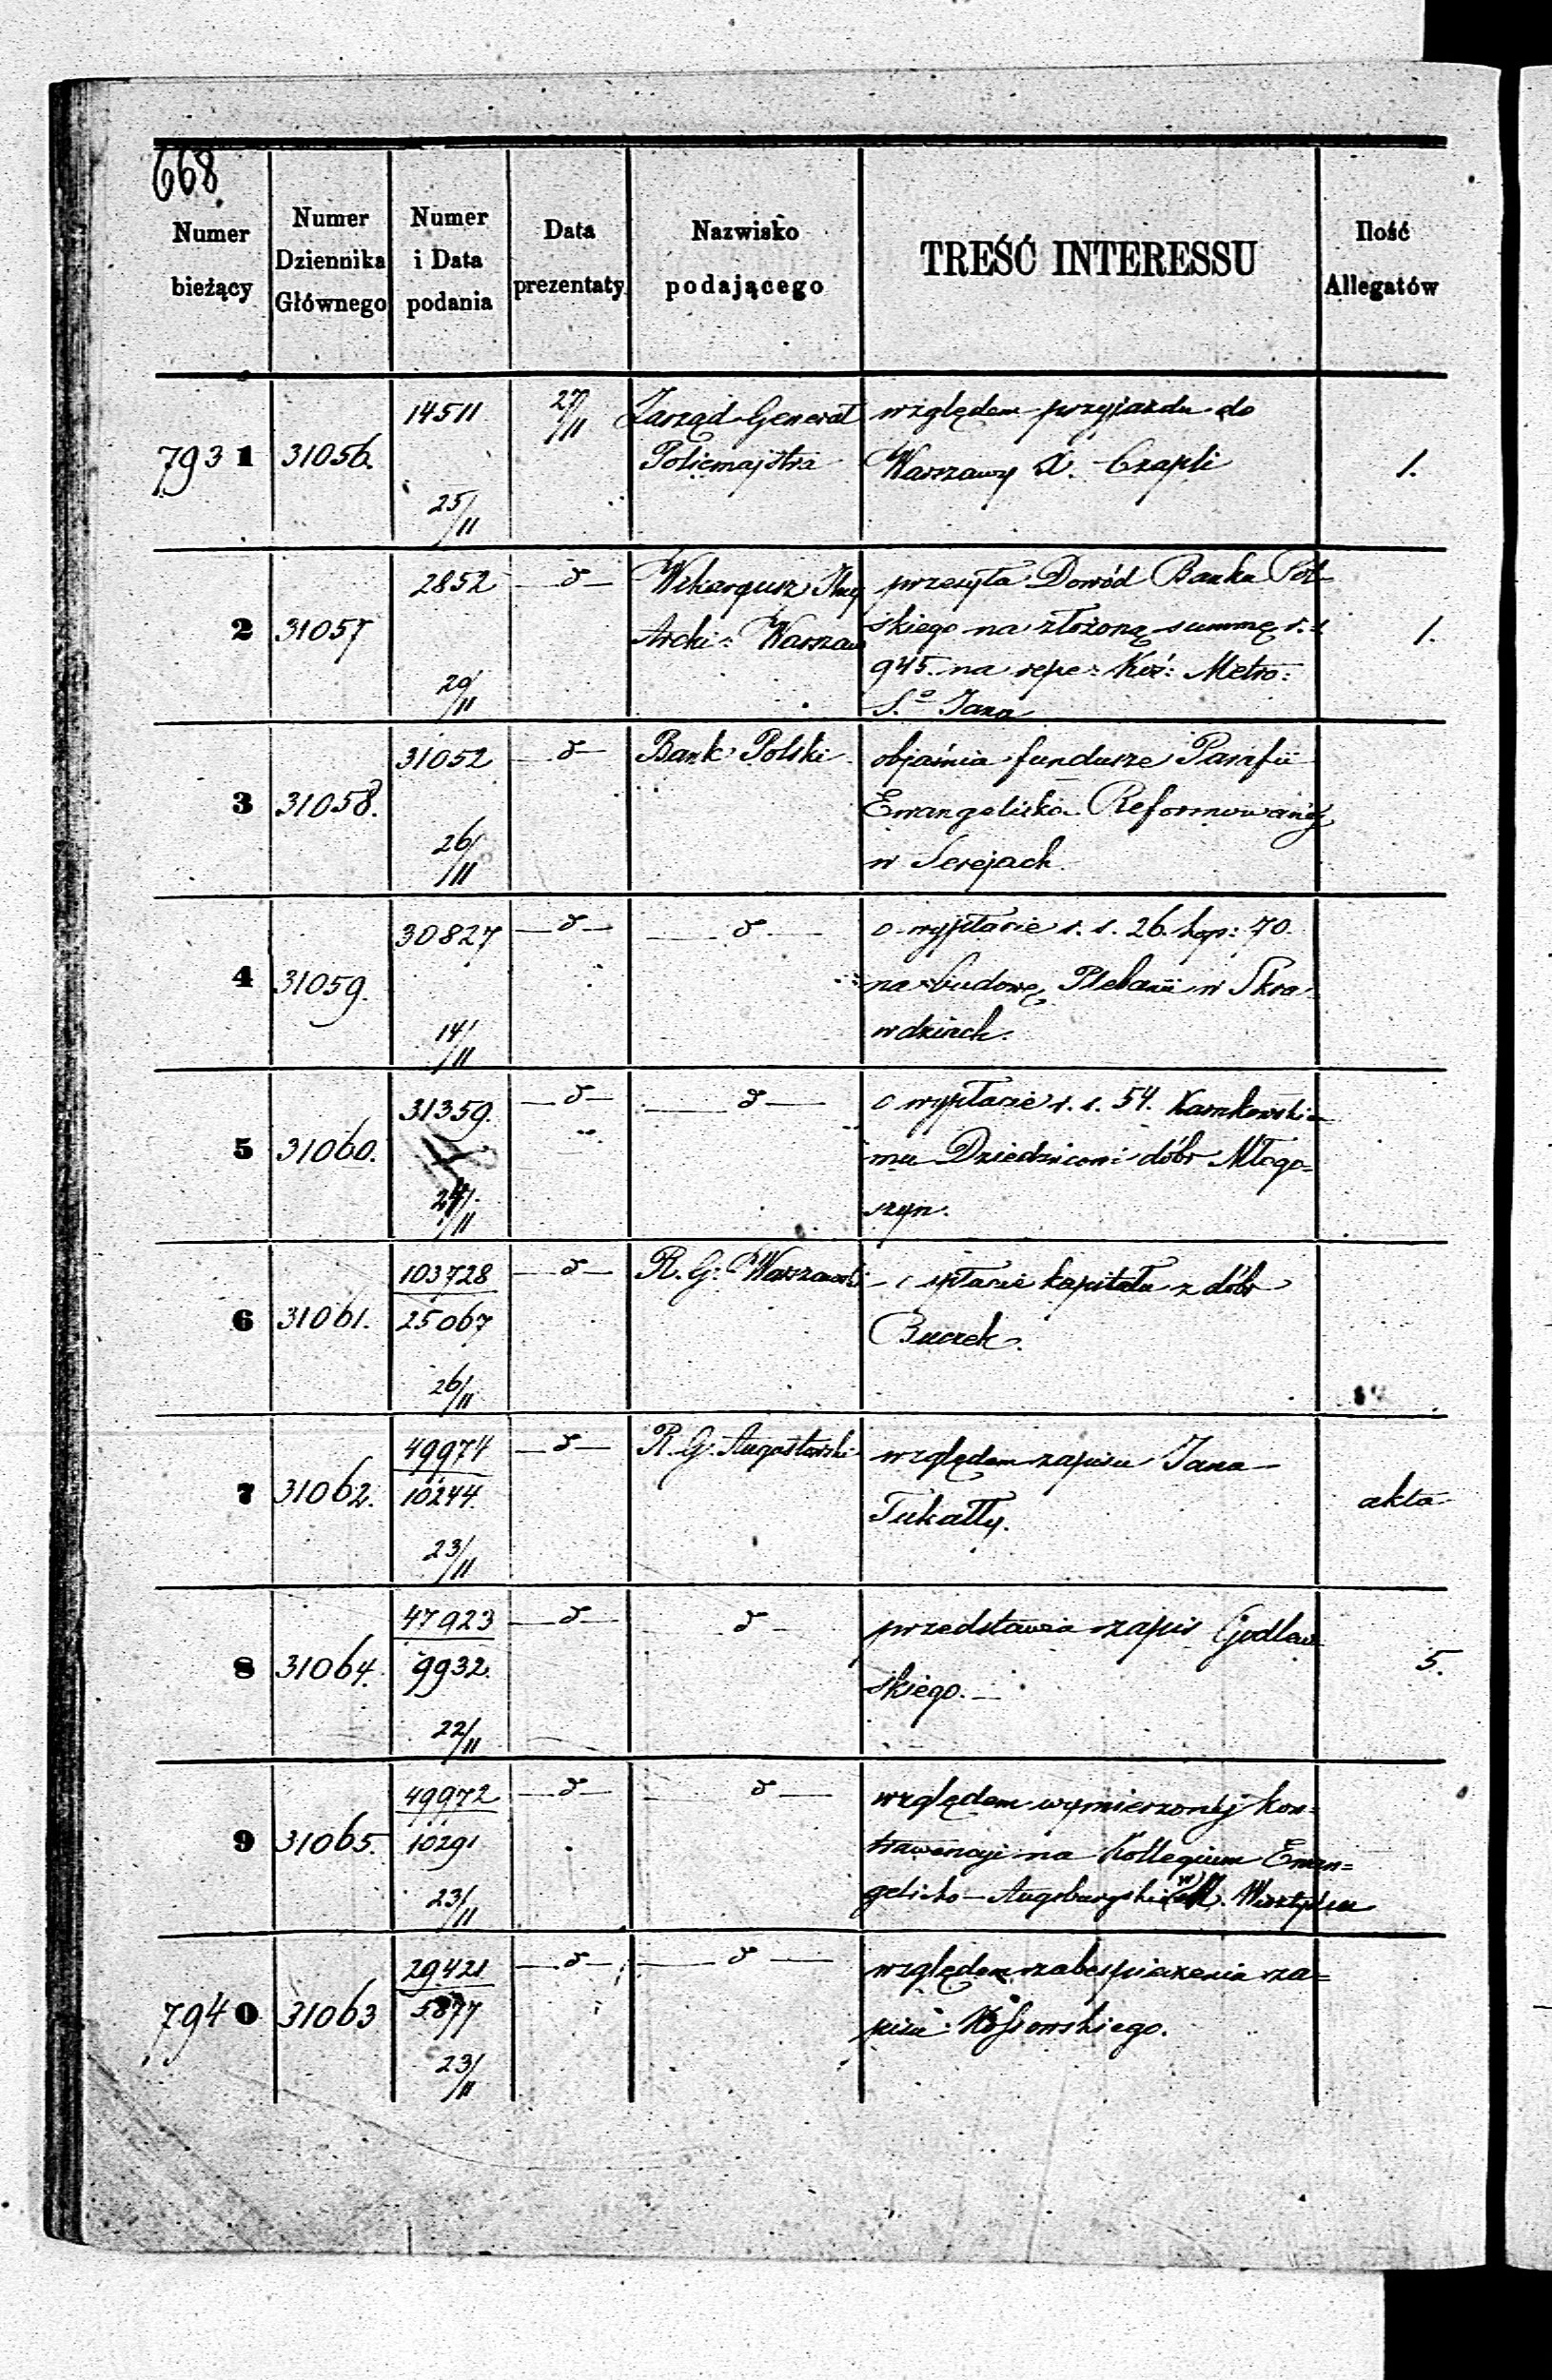 668
Numer bieżący
Numer Dziennika Głównego
Numer i Data podania
Data prezentaty
Nazwisko podającego
TREŚĆ INTERESSU
Ilość Allegatów
7931 31056. 14511 25/11 27/11 Zarząd Generał względem przyjazdu do 1.
Policmajstra Warszawy X. Czapli
2 31057 2852 29/11 — d — przesyła Dowód Banku Pol-
Archi: Warszaw skiego na złożoną summę r. s. 1.
945. na repe: Koś: Metro:
S.o Jana
3 31058. 31052 26/11 — d — Bank Polski objaśnia fundusze Parafii
Ewangelicko Reformowanej
w Serejach.
4 31059. 30827 14/11 — d — — d — o wypłacie r. s. 26. kop: 70.
na budowę Plebanii w Skra
wdzinch.
5 31060. 31359. 24/11 — d — — d — o wypłacie r. s. 54. Karnkowskie
mu Dziedzicowi dóbr Młogo=
szyn.
6 31061. 103728 25067 26/11 — d — R. G. Warszawski o spłacie kapitału z dóbr
Buczek.
7 31062. 49974 10244 23/11 — d — R. G. Augustowski względem zapisu Jana
Tukałły. akta
8 31064. 47923 9932. 22/11 — d — — d — przedstawia zapis Godlew
skiego. — 5.
9 31065. 49972 10291 23/11 — d — — d — względem wymierzonej kon=
trawencyi na Kollegium Ewan=
gelicko-Augsburgskie w Wisztyńcu
7940 31063 29421 5877 23/11 — d — — d — względem zabespieczenia za=
pisu Kossowskiego.